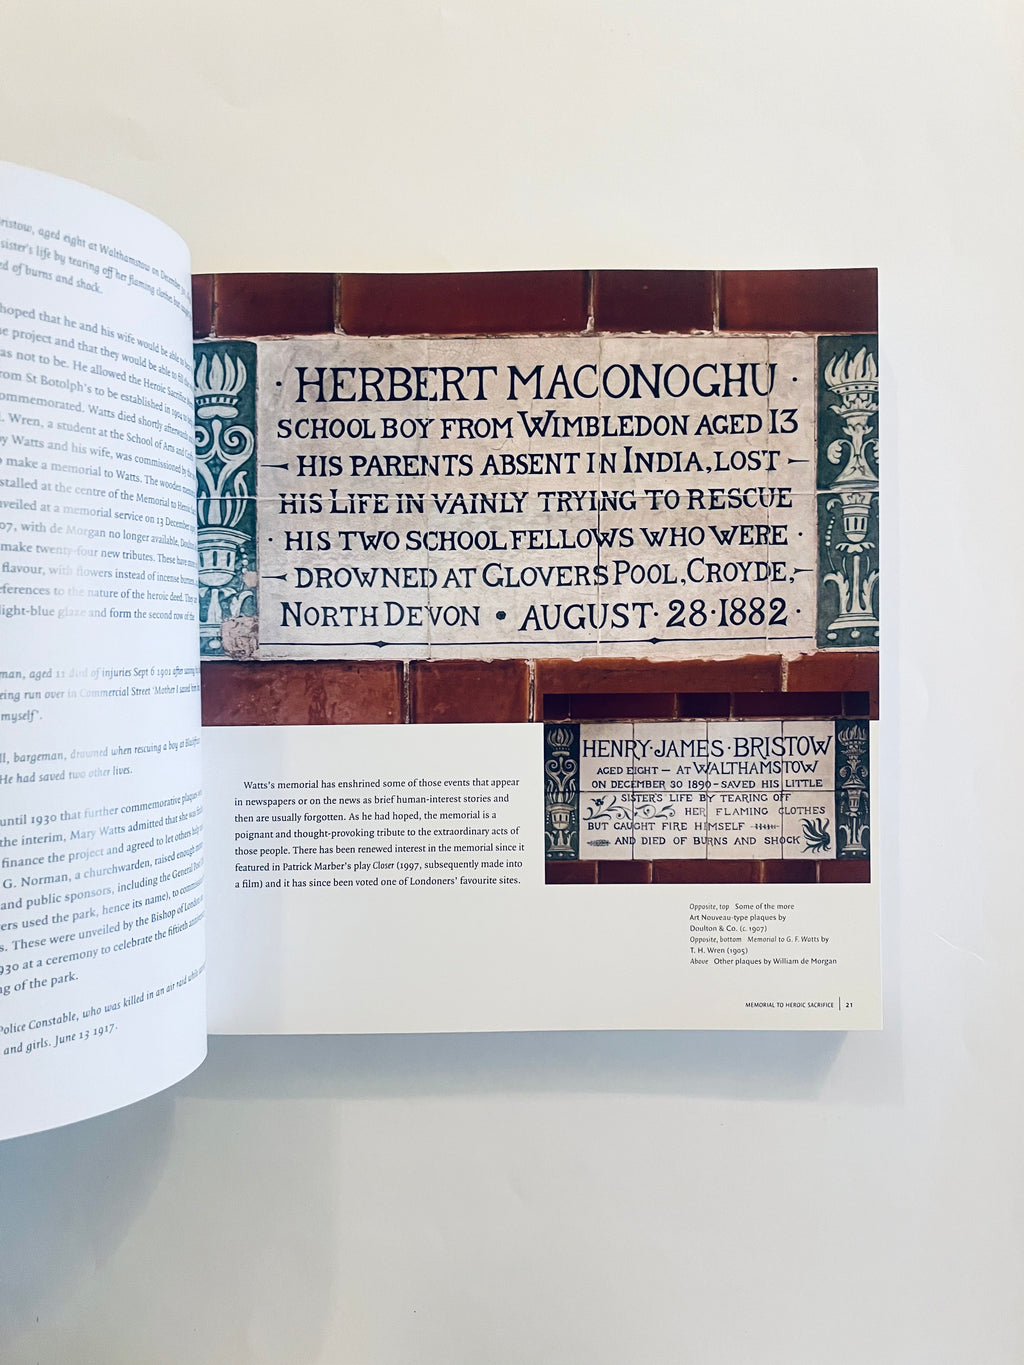 ristow, aged eight at Walthamstow on December
sister's life by tearing off her flaming clothes but caught
ed of burns and shock.
hoped that he and his wife would be able to
e project and that they would be able to
as not to be. He allowed the Heroic Sacrifice
rom St Botolph's to be established in 1904
ommemorated. Watts died shortly afterwards
. Wren, a student at the School of Arts and
by Watts and his wife, was commissioned by the
o make a memorial to Watts. The wooden
stalled at the centre of the Memorial to Heroic
veiled at a memorial service on 13 December
07, with de Morgan no longer available, Doulton
make twenty-four new tributes. These have
flavour, with flowers instead of incense burners,
eferences to the nature of the heroic deed. They
light-blue glaze and form the second row of the
man, aged 11 died of injuries Sept 6 1901 after saving
eing run over in Commercial Street 'Mother I saved him
myself'.
ll, bargeman, drowned when rescuing a boy at
He had saved two other lives.
until 1930 that further commemorative plaques
the interim, Mary Watts admitted that she was
finance the project and agreed to let others help
G. Norman, a churchwarden, raised enough
and public sponsors, including the General Post
ers used the park, hence its name), to
s. These were unveiled by the Bishop of London
930 at a ceremony to celebrate the fiftieth
ng of the park.
Police Constable, who was killed in an air raid while
and girls. June 13 1917.
· HERBERT MACONOGHU ·
SCHOOL BOY FROM WIMBLEDON AGED 13
HIS PARENTS ABSENT IN INDIA, LOST
HIS LIFE IN VAINLY TRYING TO RESCUE
· HIS TWO SCHOOL FELLOWS WHO WERE ·
DROWNED AT GLOVERS POOL, CROYDE,
NORTH DEVON • AUGUST · 28 · 1882 ·
HENRY · JAMES · BRISTOW
AGED EIGHT – AT WALTHAMSTOW
ON DECEMBER 30 1890 – SAVED HIS LITTLE
SISTER'S LIFE BY TEARING OFF
HER FLAMING CLOTHES
BUT CAUGHT FIRE HIMSELF
AND DIED OF BURNS AND SHOCK
Watts's memorial has enshrined some of those events that appear
in newspapers or on the news as brief human-interest stories and
then are usually forgotten. As he had hoped, the memorial is a
poignant and thought-provoking tribute to the extraordinary acts of
those people. There has been renewed interest in the memorial since it
featured in Patrick Marber's play Closer (1997, subsequently made into
a film) and it has since been voted one of Londoners' favourite sites.
Opposite, top Some of the more
Art Nouveau-type plaques by
Doulton & Co. (c. 1907)
Opposite, bottom Memorial to G. F. Watts by
T. H. Wren (1905)
Above Other plaques by William de Morgan
MEMORIAL TO HEROIC SACRIFICE | 21